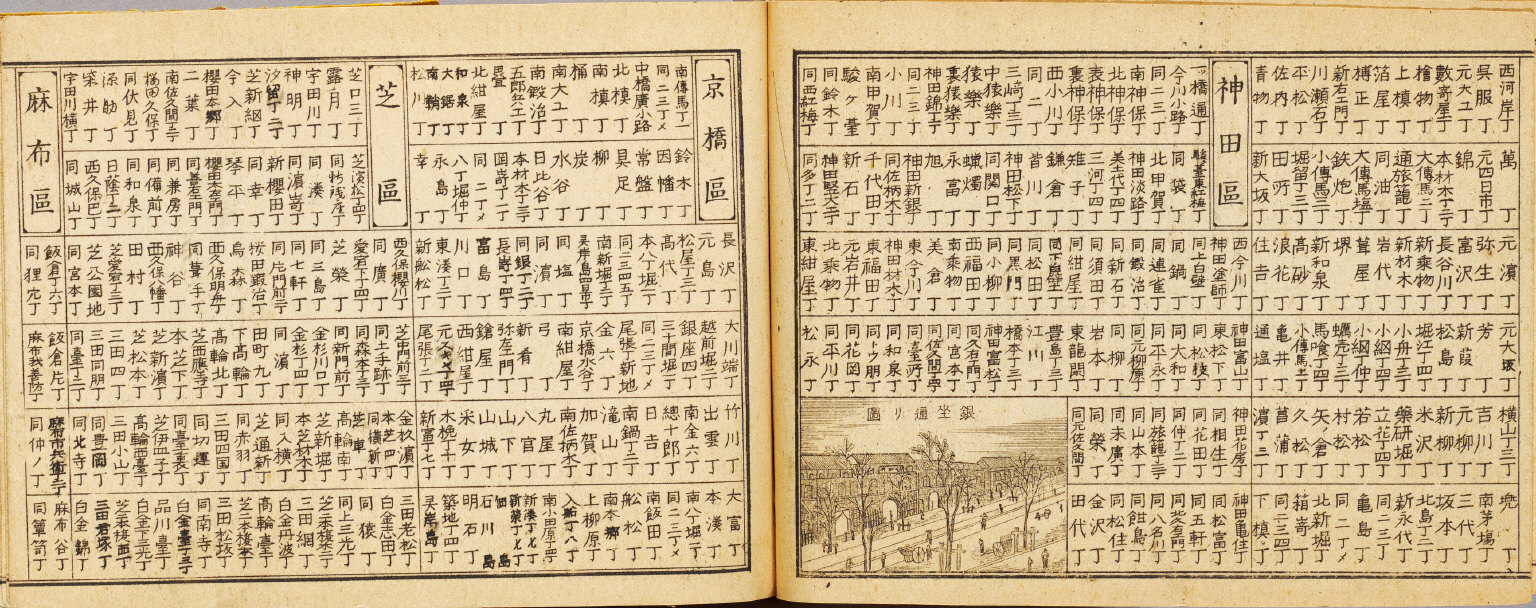 西河岸丁
呉服丁
元大工丁
數寄屋丁
檜物丁
上槇丁
箔屋丁
榑正丁
新右エ門丁
川瀬石丁
平松丁
佐内丁
青物丁
萬丁
元四日市丁
錦丁
本材木丁二
大傳馬二
大傳馬塩丁
通旅籠丁
同油丁
鉄炮丁
小傳馬三
堀留丁三
同田所丁
新大坂丁
元濱丁
弥生丁
富沢丁
長谷川丁
新乗物丁
新材木丁
岩代丁
葺屋丁
堺丁
新和泉丁
高砂丁
浪花丁
住吉丁
芳丁
新葭丁
松島丁
亀井丁
通塩丁
吉川丁
元柳丁
新柳丁
米沢丁
藥研堀丁
立花丁四
若松丁
村松丁
矢ノ倉丁
久松丁
菖蒲丁
濱丁三
兜丁
南茅場丁
三代丁
坂本丁
北島丁二
新永代丁
同二三丁
亀島丁
同二丁メ
北新堀丁
箱嵜丁
同二三四丁
下槙丁
神田區
一橋通丁
今川小路丁
同二三丁
南神保丁
北神保丁
表神保丁
裏神保丁
西小川丁
同二丁
三﨑丁三
中猿樂丁
猿樂丁
裏猿樂丁
神田錦丁三
小川丁
南甲賀丁
駿ヶ臺
同鈴木丁
同西紅梅丁
駿臺東紅梅丁
同袋丁
北甲賀丁
神田淡路丁
美土代丁四
三河丁四
雉子丁
鎌倉丁
皆川丁
神田松下丁
同関口丁
蠟燭丁
永富丁
旭丁
神田新銀丁
同佐柄木丁
千代田丁
新石丁
神田竪大工丁
同多丁二
西今川丁
神田塗師丁
同上白壁丁
同鍋丁
同連雀丁
同鍛冶丁
同新石丁
同須田丁
同紺屋丁
同下白壁丁
同松田丁
同黒門丁
同小柳丁
西福田丁
南乗物丁
美倉丁
東今川丁
神田材木丁
東福田丁
元岩井丁
北乗物丁
東紺屋丁
神田富山丁
東松下丁
同松枝丁
同大和丁
同平永丁
同元柳原丁
岩本丁
東龍閑丁
豊島丁三
江川丁
橋本丁三
神田富松丁
同久右エ門丁
同宮本丁
同佐久間丁四
同臺所丁
同和泉丁
同花岡丁
同平川丁
松永丁
神田花房丁
同相生丁
同花田丁
同仲丁二
同旅籠丁三
同山本丁
同末廣丁
同榮丁
同元佐久間丁
神田亀住丁
同松富丁
同五軒丁
同八名川丁
同餌島丁
同松住丁
金沢丁
田代丁
銀坐通リ圖
京橋區
南傳馬丁一
同二三丁メ
中橋廣小路
北槙丁
南槙丁
桶丁
南大工丁
南鍛冶丁
五郎兵エ丁
畳丁
北紺屋丁
和泉丁
大鋸丁
南鞘丁
松川丁
鈴木丁
因幡丁
常盤丁
具足丁
柳丁
炭丁
水谷丁
日比谷丁
本材木丁三
岡﨑丁二
同二丁メ
八丁堀仲丁
永島丁
幸丁
長沢丁
元島丁
松屋丁三
高代丁
本八丁堀一丁
同二三四五丁
南新堀丁二
同塩丁
同濱丁
同銀丁二
長﨑丁四
富島丁
川口丁
東湊丁二
新船松丁
大川端丁
越前堀二丁
銀座四丁
三十間堀丁
同二三丁メ
尾張丁新地
金六丁
京橋水谷丁
南紺屋丁
弓丁
新肴丁
弥左エ門丁
鎗屋丁
西紺屋丁
尾張丁二
竹川丁
出雲丁
南金六丁
總十郎丁
日吉丁
南鍋丁二
滝山丁
加賀丁
南佐柄木丁
丸屋丁
八官丁
山下丁
山城丁
米女丁
木挽丁十
新富丁七
大富丁
本湊丁
南八丁堀丁
同二三丁メ
南飯田丁
船松丁
南本郷丁
上柳原丁
入船丁八
南小田原丁四
新湊丁七
新榮丁七
佃島
石川島
明石丁
築地丁四
芝區
芝口三丁
露月丁
宇田川丁
神明丁
汐留丁二
芝新網丁
今入丁
櫻田本郷丁
二葉丁
南佐久間丁二
桜田久保丁
同伏見丁
源助丁
柴井丁
宇田川横丁
同湊丁
同濱﨑丁
新櫻田丁
同幸丁
琴平丁
櫻田本左エ門丁
同善左エ門丁
同兼房丁
同備前丁
同和泉丁
日蔭丁二
西久保巴丁
同城山丁
西久保櫻川丁
同廣丁
愛宕下丁四
芝榮丁
同三島丁
同七軒丁
同片門前丁二
桜田鍛冶丁
烏森丁
西久保明舟丁
同葺手丁
神谷丁
西久保八幡丁
田村丁
芝愛宕丁三
芝公園地
同宮本丁
芝中門前丁三
同土手跡丁
同森本丁三
同新門前丁
金杉川口丁
金杉丁四
同濱丁
田町九丁
下高輪丁
高輪北丁
芝西應寺丁
本芝下丁
芝新濱丁
芝松本丁
三田四丁
三田同朋丁
同臺丁二
金杦濱丁
本芝四丁
同横新丁
芝車丁
高輪南丁
芝新堀丁
本芝材木丁
同入横丁
芝通新丁
同赤羽丁
三田四国丁
同切通丁
同臺裏丁
芝伊皿子丁
高輪西臺丁
三田小山丁
同豊岡丁
同北寺丁
三田老松丁
白金志田丁
同猿丁
同上三光丁
芝本榎本丁
三田綱丁
白金丹波丁
高輪臺丁
芝二本榎本丁
三田松坂丁
同南寺丁
白金臺丁三
品川臺丁
白金三光丁
芝本榎西丁
三田君塚丁
白金錦丁
麻布區
飯倉丁六丁
同狸穴丁
飯倉片丁
麻布我善防丁
麻布市兵衛丁二
同仲ノ丁
麻布谷丁
同箪笥丁